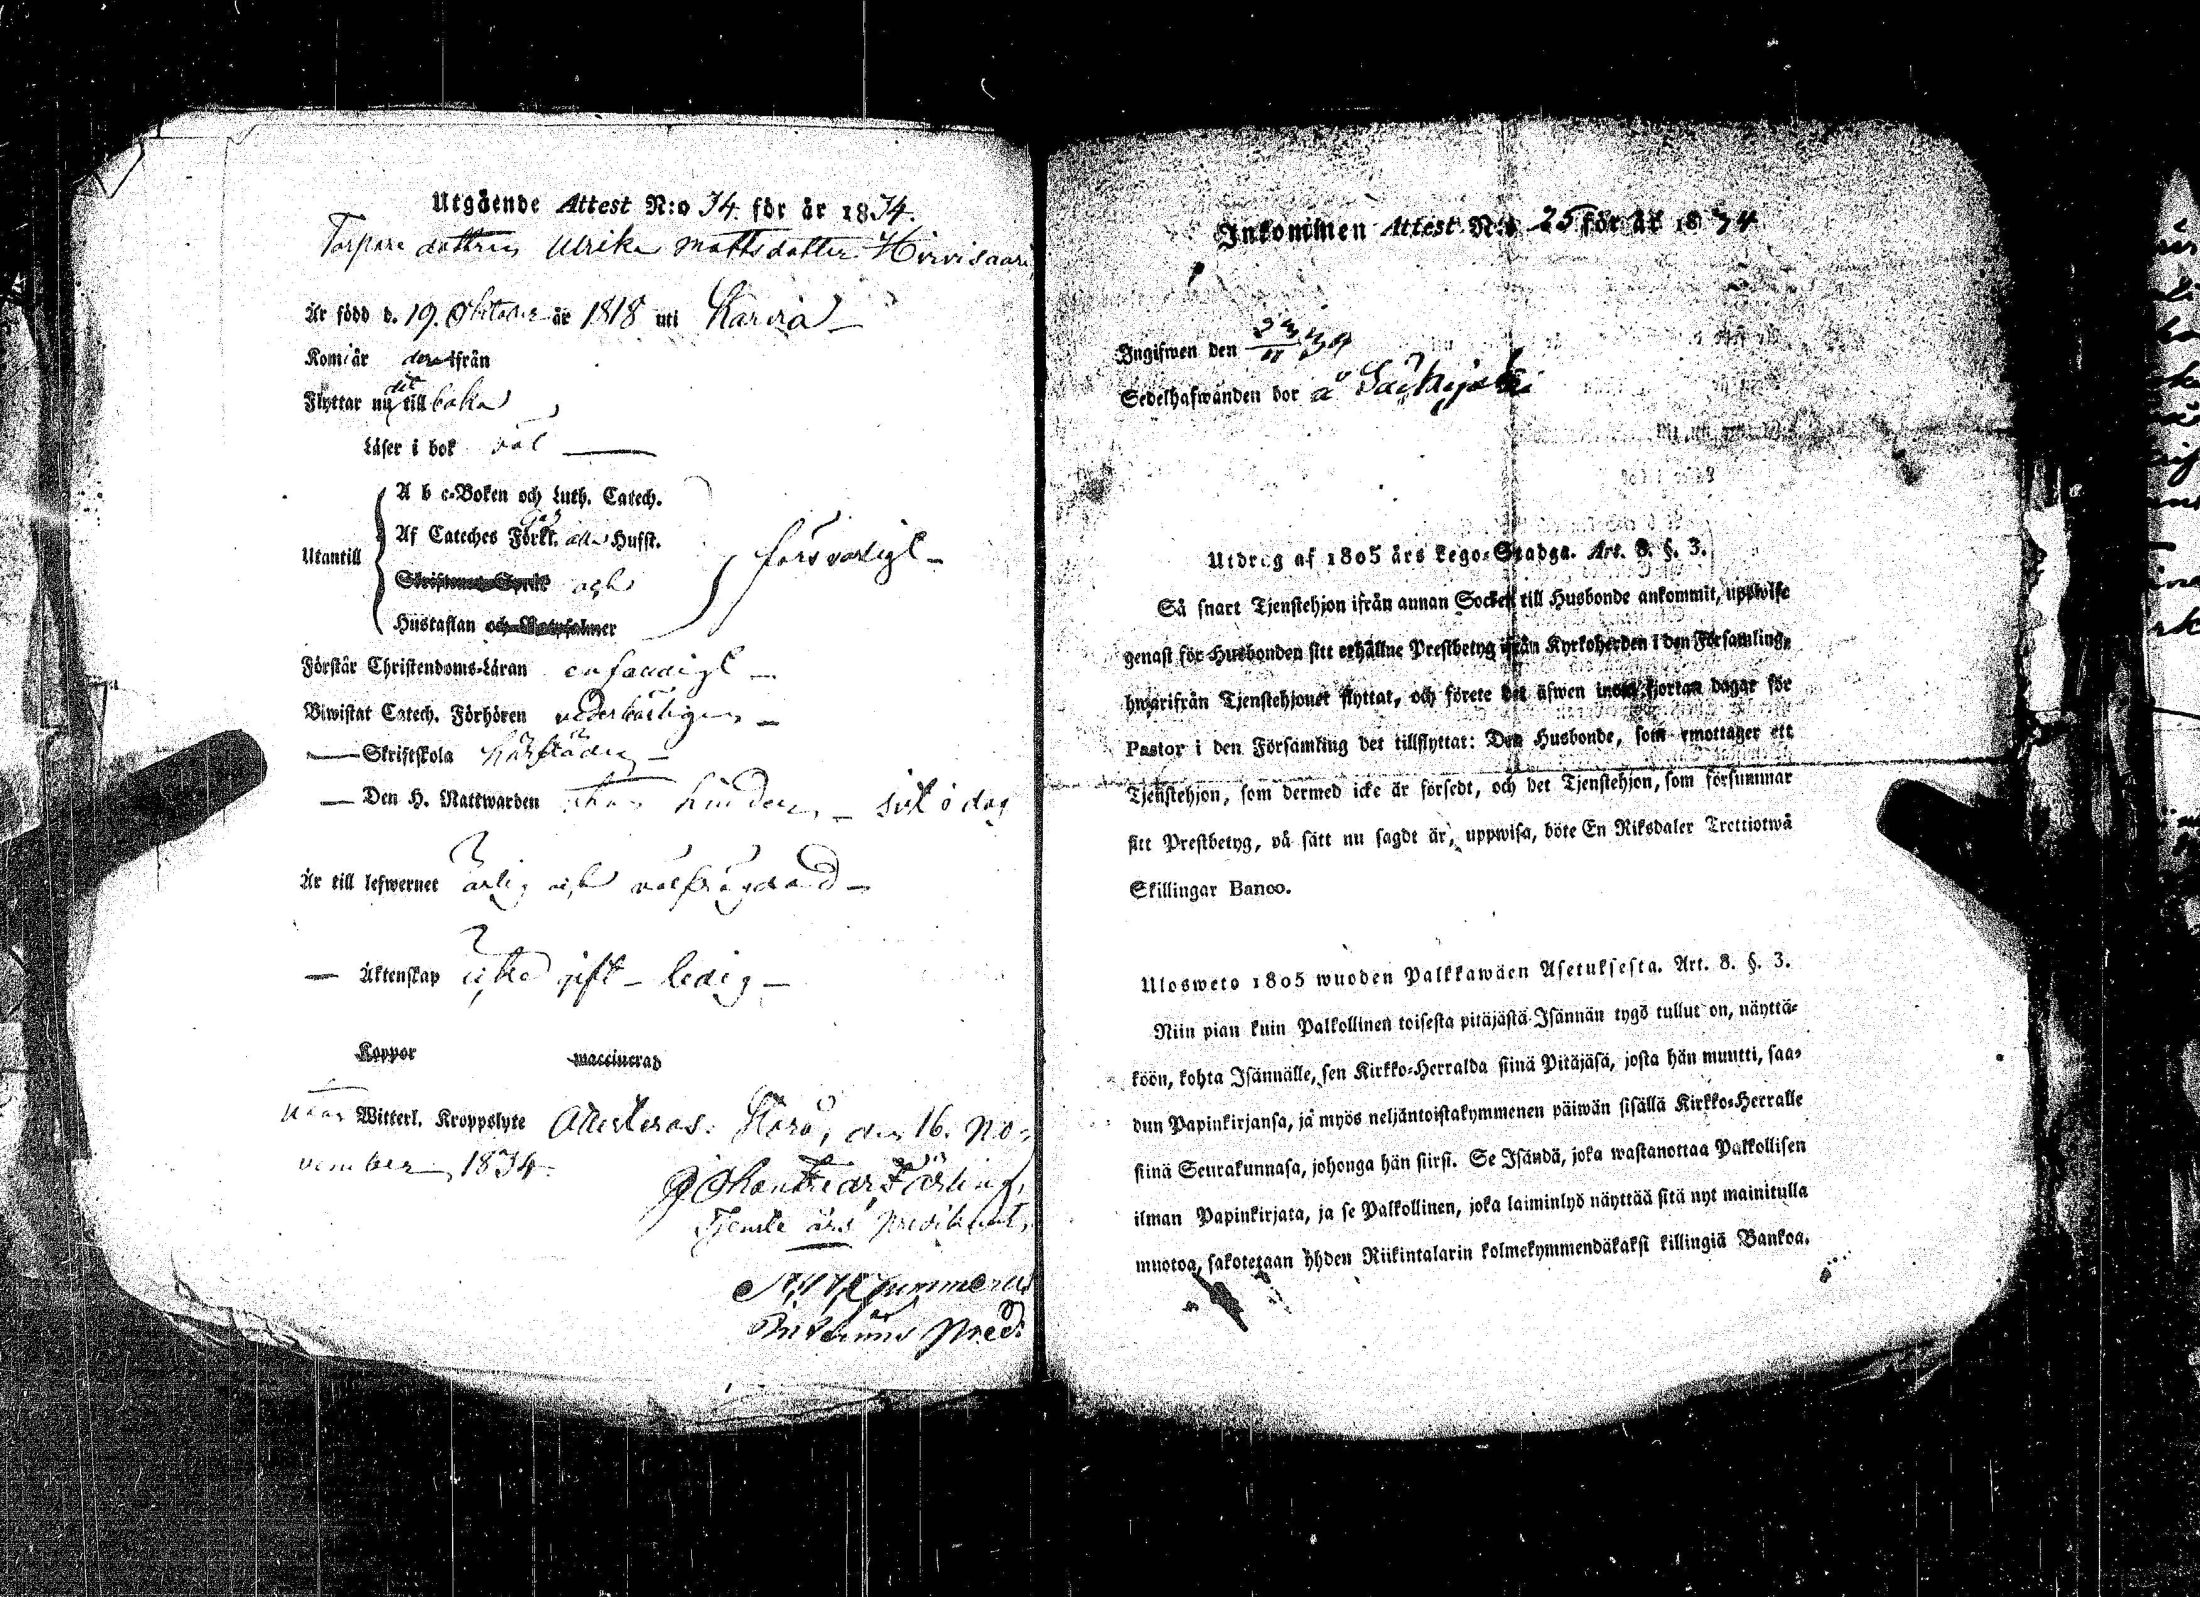 Utgående Attest N:o 34. för år 1834.
Torpare dottren Ulrika Mattsdotter Hirvisaari
Är född d. 19. Oktober år 1818 uti Karvia
Kom år ifrån
Flyttar nu dit till baka
Läser i bok väl
A b c-Boken och Luth. Catech.
Af Cateches Förkl. alla Hufst.
Utantill försvarligt
och
Hustaflan
Förstår Christendoms-Läran enfaldigt
Biwistat Catech. Förhören vederbörligen
Skriftskola härstädes
Den H. Nattwarden utan hinder, sist i dag
Är till lefwernet ärlig och välfrägdad
Äktenskap icke gift - ledig
Koppor waccinerad
utan Witterl. Kroppslyte Attesteras. Storå, den 16. No-
vember 1834.
Inkommen Attest N:o 25 för år 1834
Ingifwen den 23/11 34
Sedelhafwanden bor å Säkkijärvi
Utdrag af 1805 års Lego-Stadga. Art. 8. §. 3.
Så snart Tjenstehjon ifrån annan Socken till Husbonde ankommit, uppwise
genast för Husbonden sitt erhållne Prestbetyg ifrån Kyrkoherden i den Församling,
hwarifrån Tjenstehjonet flyttat, och förete det äfwen inom fjortan dagar för
Pastor i den Församling det tillflyttat: Den Husbonde, som emottager ett
Tjenstehjon, som dermed icke är försedt, och det Tjenstehjon, som försummar
sitt Prestbetyg, på sätt nu sagdt är, uppwisa, böte En Riksdaler Trettiotwå
Skillingar Banco.
Ulosweto 1805 wuoden Palkkawäen Asetuksesta. Art. 8. §. 3.
Niin pian kuin Palkollinen toisesta pitäjästä Isännän tygö tullut on, näyttä-
köön, kohta Isännälle, sen Kirkko-Herralda siinä Pitäjäsä, josta hän muutti, saa-
dun Papinkirjansa, ja myös neljäntoistakymmenen päiwän sisällä Kirkko-Herralle
siinä Seurakunnasa, johonga hän siirsi. Se Isändä, joka wastanottaa Palkollisen
ilman Papinkirjata, ja se Palkollinen, joka laiminlyö näyttää sitä nyt mainitulla
muotoa, sakotetaan yhden Riikintalarin kolmekymmendäkaksi killingiä Bankoa.